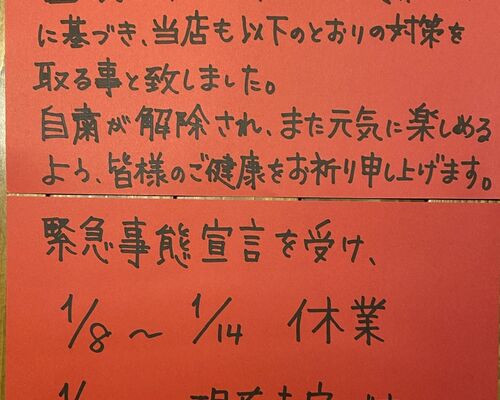 に基づき、当店も以下のとおりの対策を
取る事と致しました。
自粛が解除され、また元気に楽しめる
よう、皆様のご健康をお祈り申し上げます。
緊急事態宣言を受け、
1/8～1/14 休業